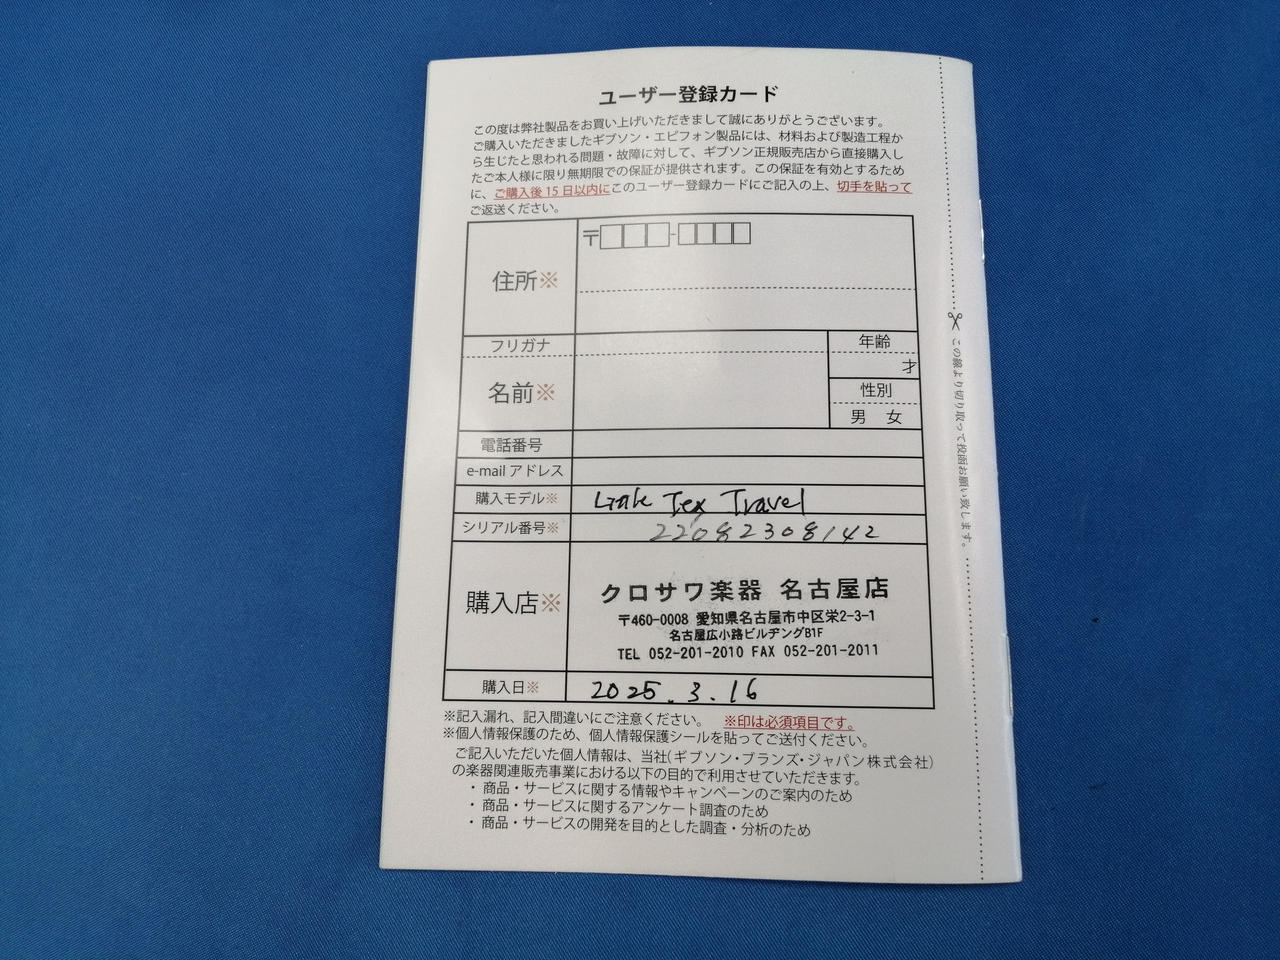 ユーザー登録カード
この度は弊社製品をお買い上げいただきまして誠にありがとうございます。
ご購入いただきましたギブソン・エピフォン製品には、材料および製造工程か
ら生じたと思われる問題・故障に対して、ギブソン正規販売店から直接購入し
たご本人様に限り無期限での保証が提供されます。この保証を有効とするため
に、ご購入後15日以内にこのユーザー登録カードにご記入の上、切手を貼って
ご返送ください。
住所※
〒 -
フリガナ
名前※
年齢
才
性別
男 女
電話番号
e-mail アドレス
購入モデル※ Tex Travel
シリアル番号※ 22082308142
購入店※
クロサワ楽器 名古屋店
〒460-0008 愛知県名古屋市中区栄2-3-1
名古屋広小路ビルヂングB1F
TEL 052-201-2010 FAX 052-201-2011
購入日※ 2025.3.16
※記入漏れ、記入間違いにご注意ください。 ※印は必須項目です。
※個人情報保護のため、個人情報保護シールを貼ってご送付ください。
ご記入いただいた個人情報は、当社(ギブソン・ブランズ・ジャパン株式会社)
の楽器関連販売事業における以下の目的で利用させていただきます。
・商品・サービスに関する情報やキャンペーンのご案内のため
・商品・サービスに関するアンケート調査のため
・商品・サービスの開発を目的とした調査・分析のため
この線より切り取って投函お願い致します。